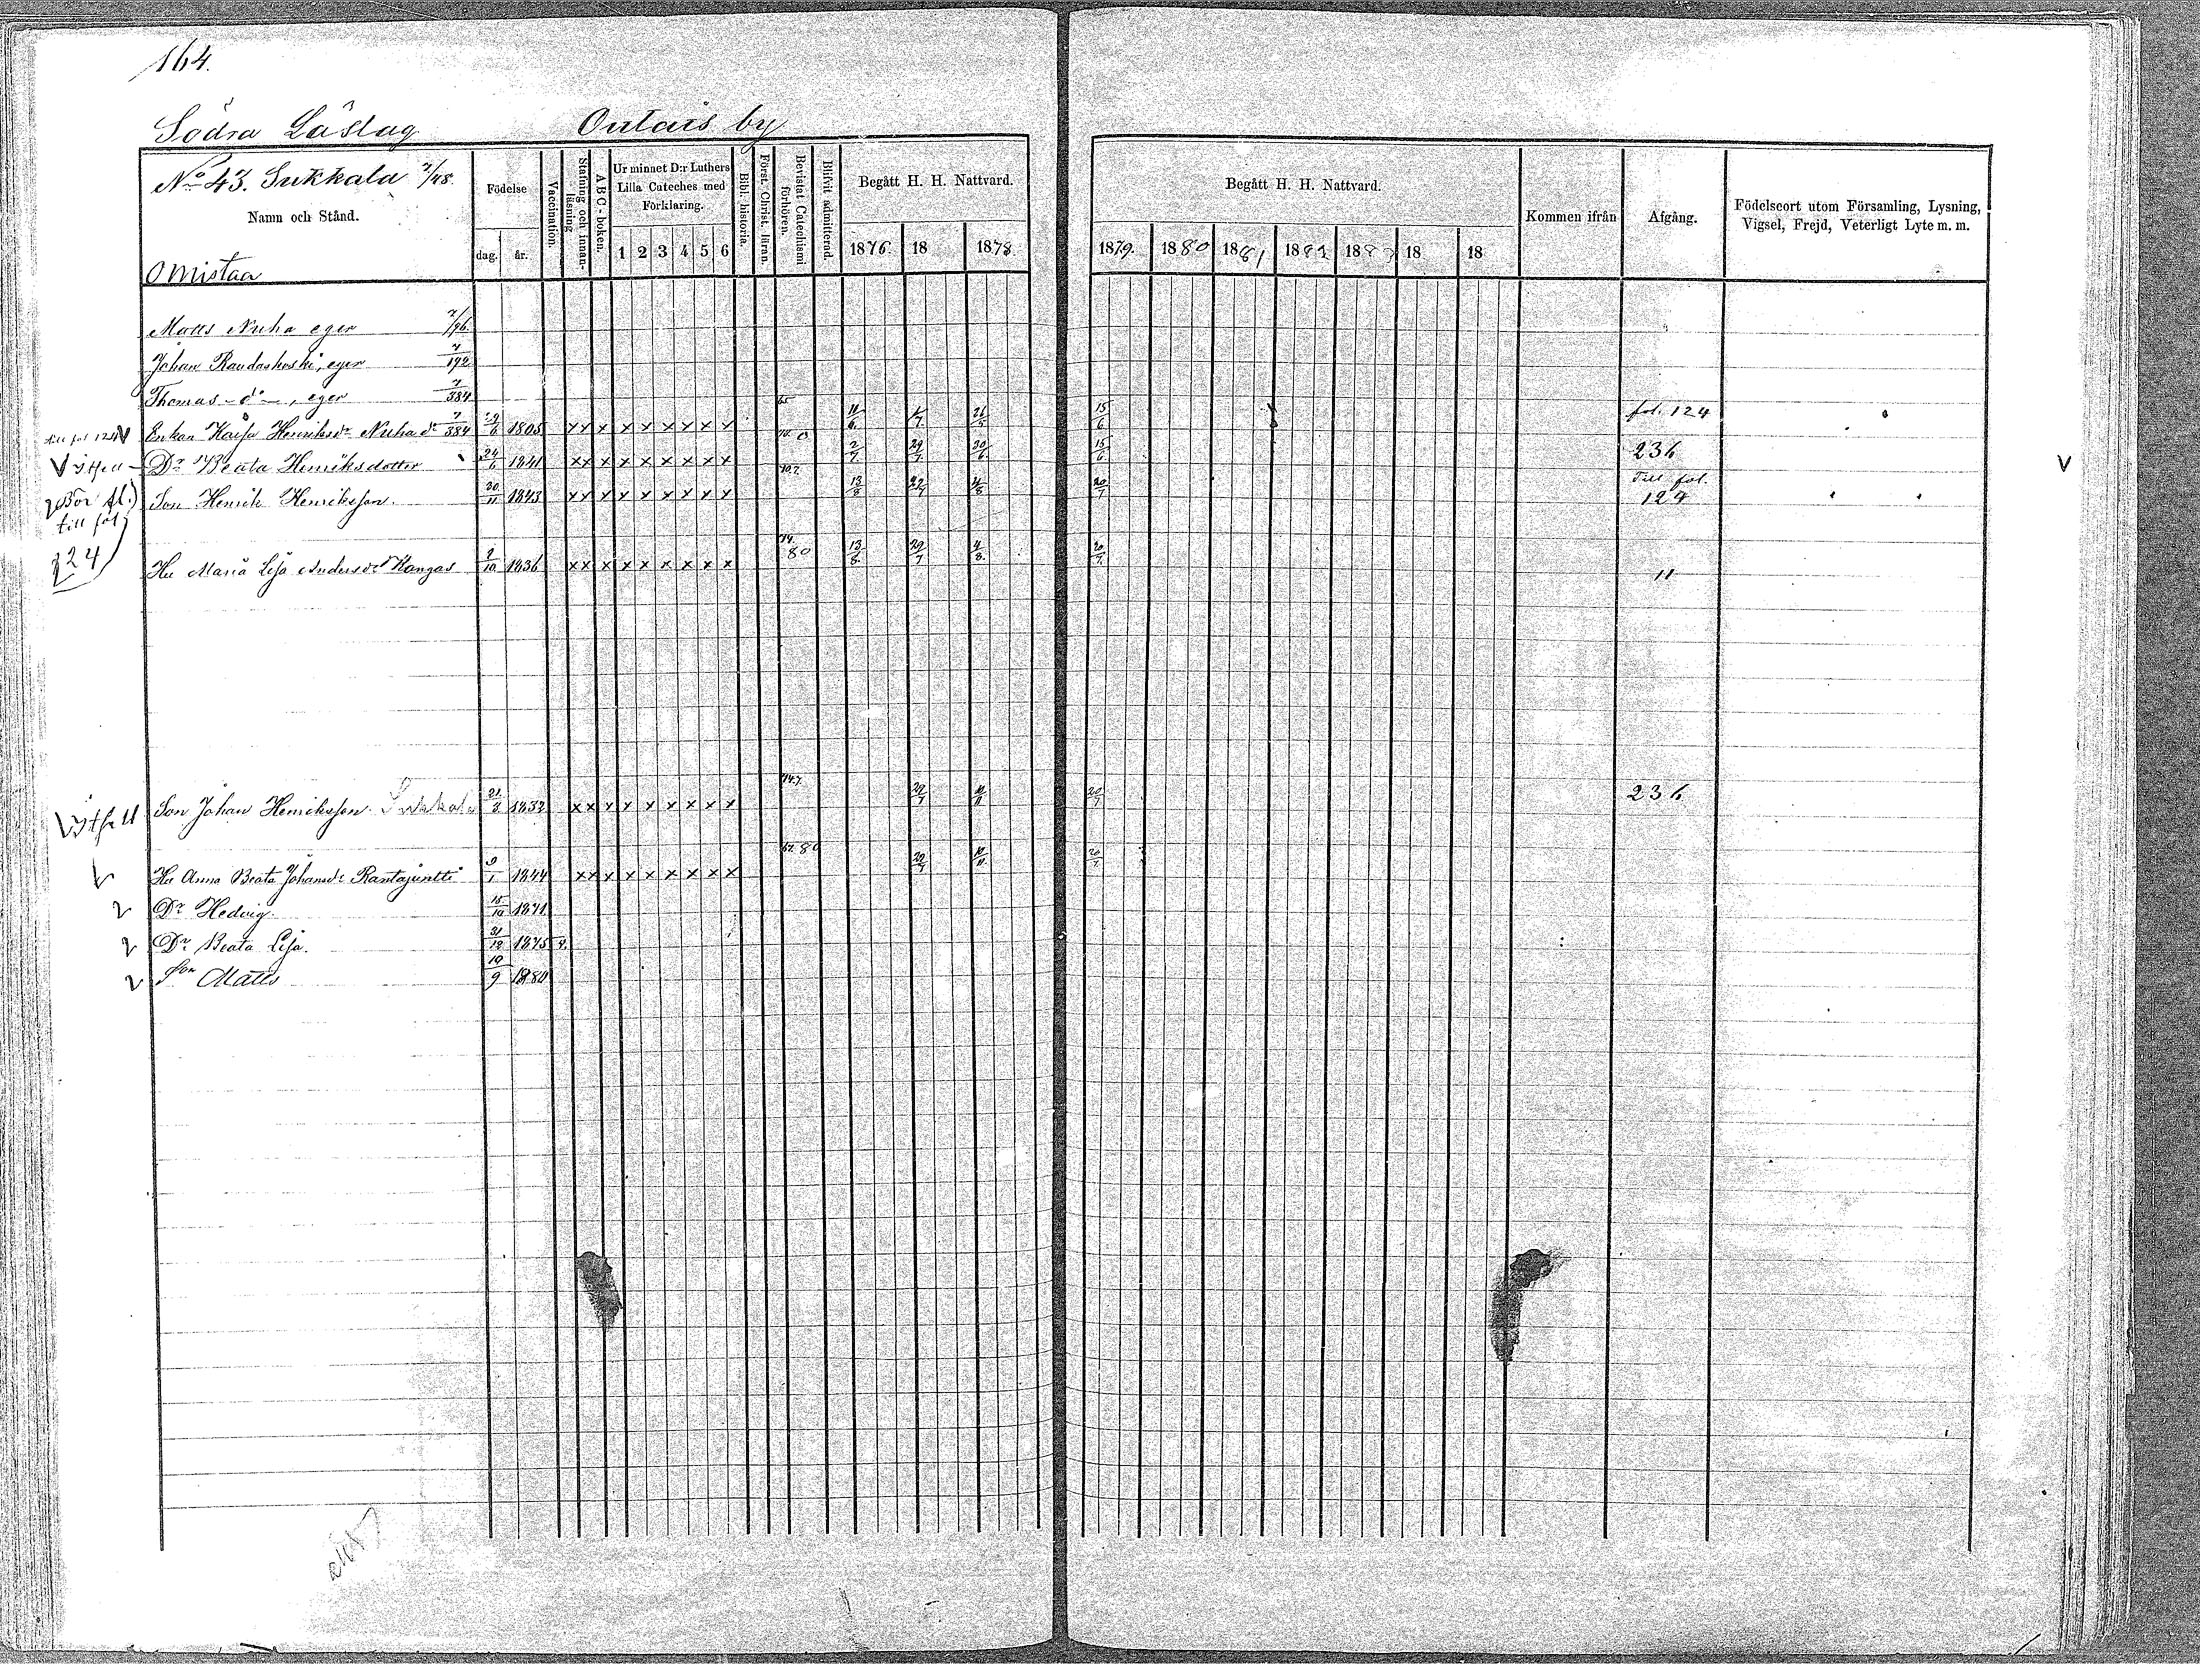 164.
Södra Läslag Oulais by
No 43. Sukkala 7/48.
Namn och Stånd.
Omistaa
Födelse
dag. år.
Vaccination.
Stafning och innanläsning
A B C-boken.
Ur minnet D:r Luthers Lilla Cateches med Förklaring.
1 2 3 4 5 6
Bibl. historia.
Först. Christ. läran.
Bevistat Catechismi förhören.
Blifvit admitterad.
Begått H. H. Nattvard.
1876. 18 1878.
Begått H. H. Nattvard.
1879. 1880 1881 1882 1883 18 18
Kommen ifrån
Afgång.
Födelseort utom Församling, Lysning, Vigsel, Frejd, Veterligt Lyte m. m.
Matts Nuha eger 7/96.
Johan Raudaskoski, eger 7/192
Thomas -d:o-, eger 7/384
till fol 124 V Enkan Kaisa Henriksdr Nuha 7/384 1805 x x x x x x x x x 65 11/6. 26/5 15/6. fol. 124
V Dr Beata Henriksdotter 24/6 1841 x x x x x x x x x 2/7. 29/7 30/6 15/6. 236
Bör fl. till fol 124 Son Henrik Henriksson. 20/11 1843 x x x x x x x x x 13/8 4/8 20/7 Till fol. 124
Hu Maria Lisa Andersdr Kangas 2/10 1836 x x x x x x x x x 74. 80 13/8. 29/7 4/8. 20/7. "
Son Johan Henriksson. Sukkala 21/8 1832 x x x x x x x x x 29/7 20/7 236
Hu Anna Beata Johansdr Rantajuntti 9/1 1844 x x x x x x x x x 80 29/7 20/7
Dr Hedvig. 15/10 1871
Dr Beata Lisa. 31/12 1875
Son Matts 10/9 1880
V